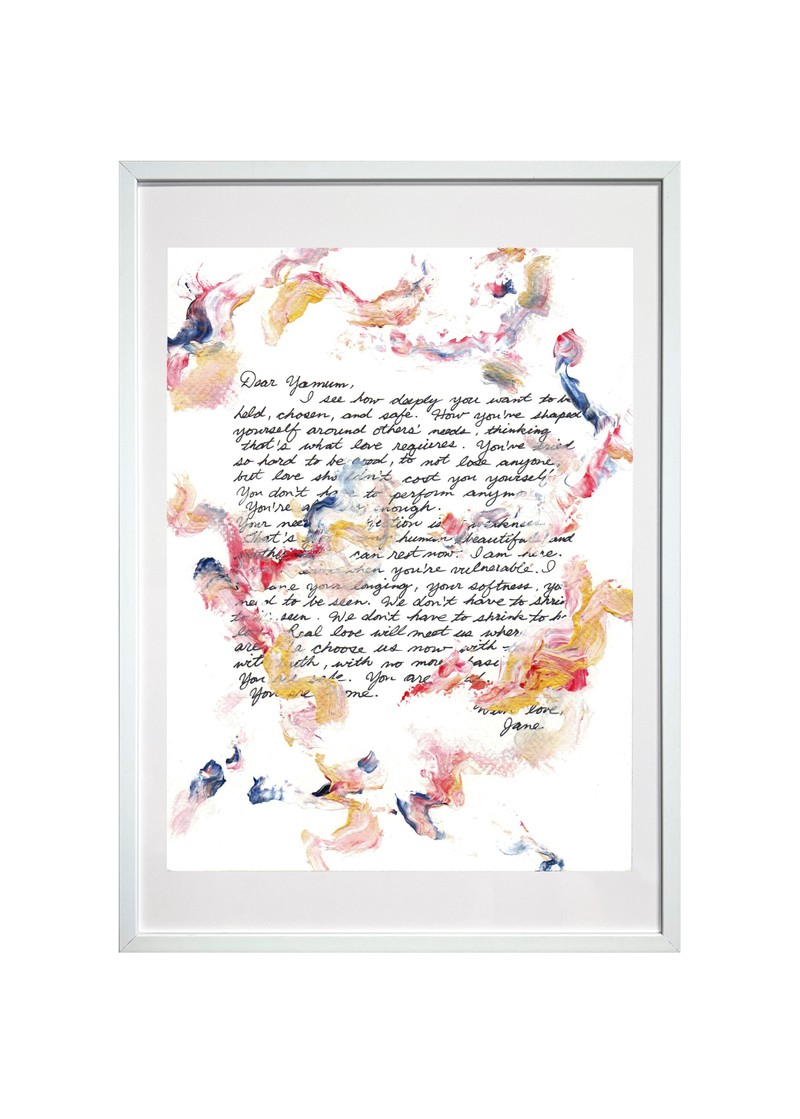 Dear Yamum,
I see how deeply you want to be
held, chosen, and safe. How you've shaped
yourself around others' needs, thinking
that's what love requires. You've tried
so hard to be good, to not lose anyone,
but love shouldn't cost you yourself.
You don't have to perform anymore
You're already enough.
Your need is weakness
That's human, beautiful, and
can rest now. I am here.
when you're vulnerable. I
your longing, your softness, your
need to be seen. We don't have to shrink
to seen. We don't have to shrink to be
Real love will meet us where
are choose us now with
with truth, with no more
You are safe. You are
You're home.
With love,
Jane